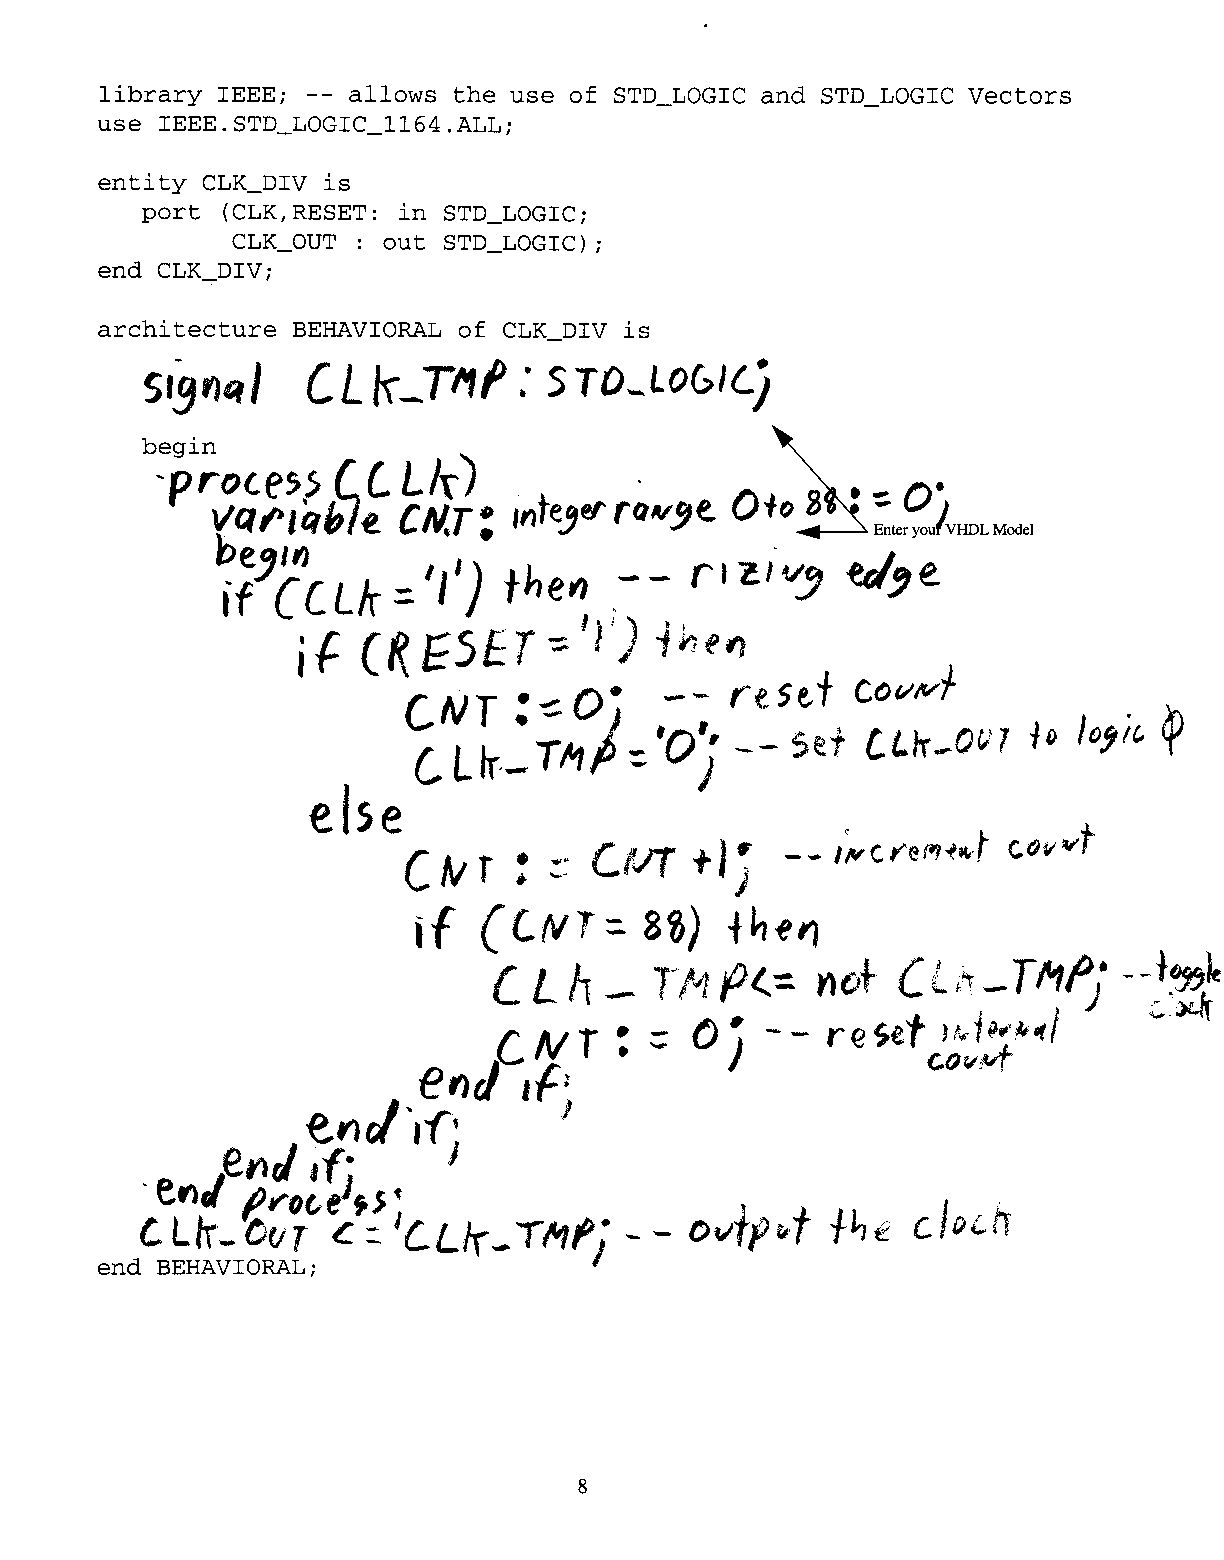 library IEEE; -- allows the use of STD_LOGIC and STD_LOGIC Vectors
use IEEE.STD_LOGIC_1164.ALL;
entity CLK_DIV is
port (CLK,RESET: in STD_LOGIC;
CLK_OUT : out STD_LOGIC);
end CLK_DIV;
architecture BEHAVIORAL of CLK_DIV is
signal CLK_TMP : STD_LOGIC;
begin
process (CLK)
variable CNT: integer range 0 to 88 := 0;
Enter your VHDL Model
begin
if (CLK = '1') then -- rizing edge
if (RESET = '1') then
CNT := 0; -- reset count
CLK_TMP = '0'; -- set CLK_OUT to logic φ
else
CNT := CNT +1; -- increment count
if (CNT = 88) then
CLK_TMP <= not CLK_TMP; -- toggle clock
CNT := 0; -- reset internal count
end if;
end if;
end if;
end process;
CLK_OUT <= CLK_TMP; -- output the clock
end BEHAVIORAL;
8